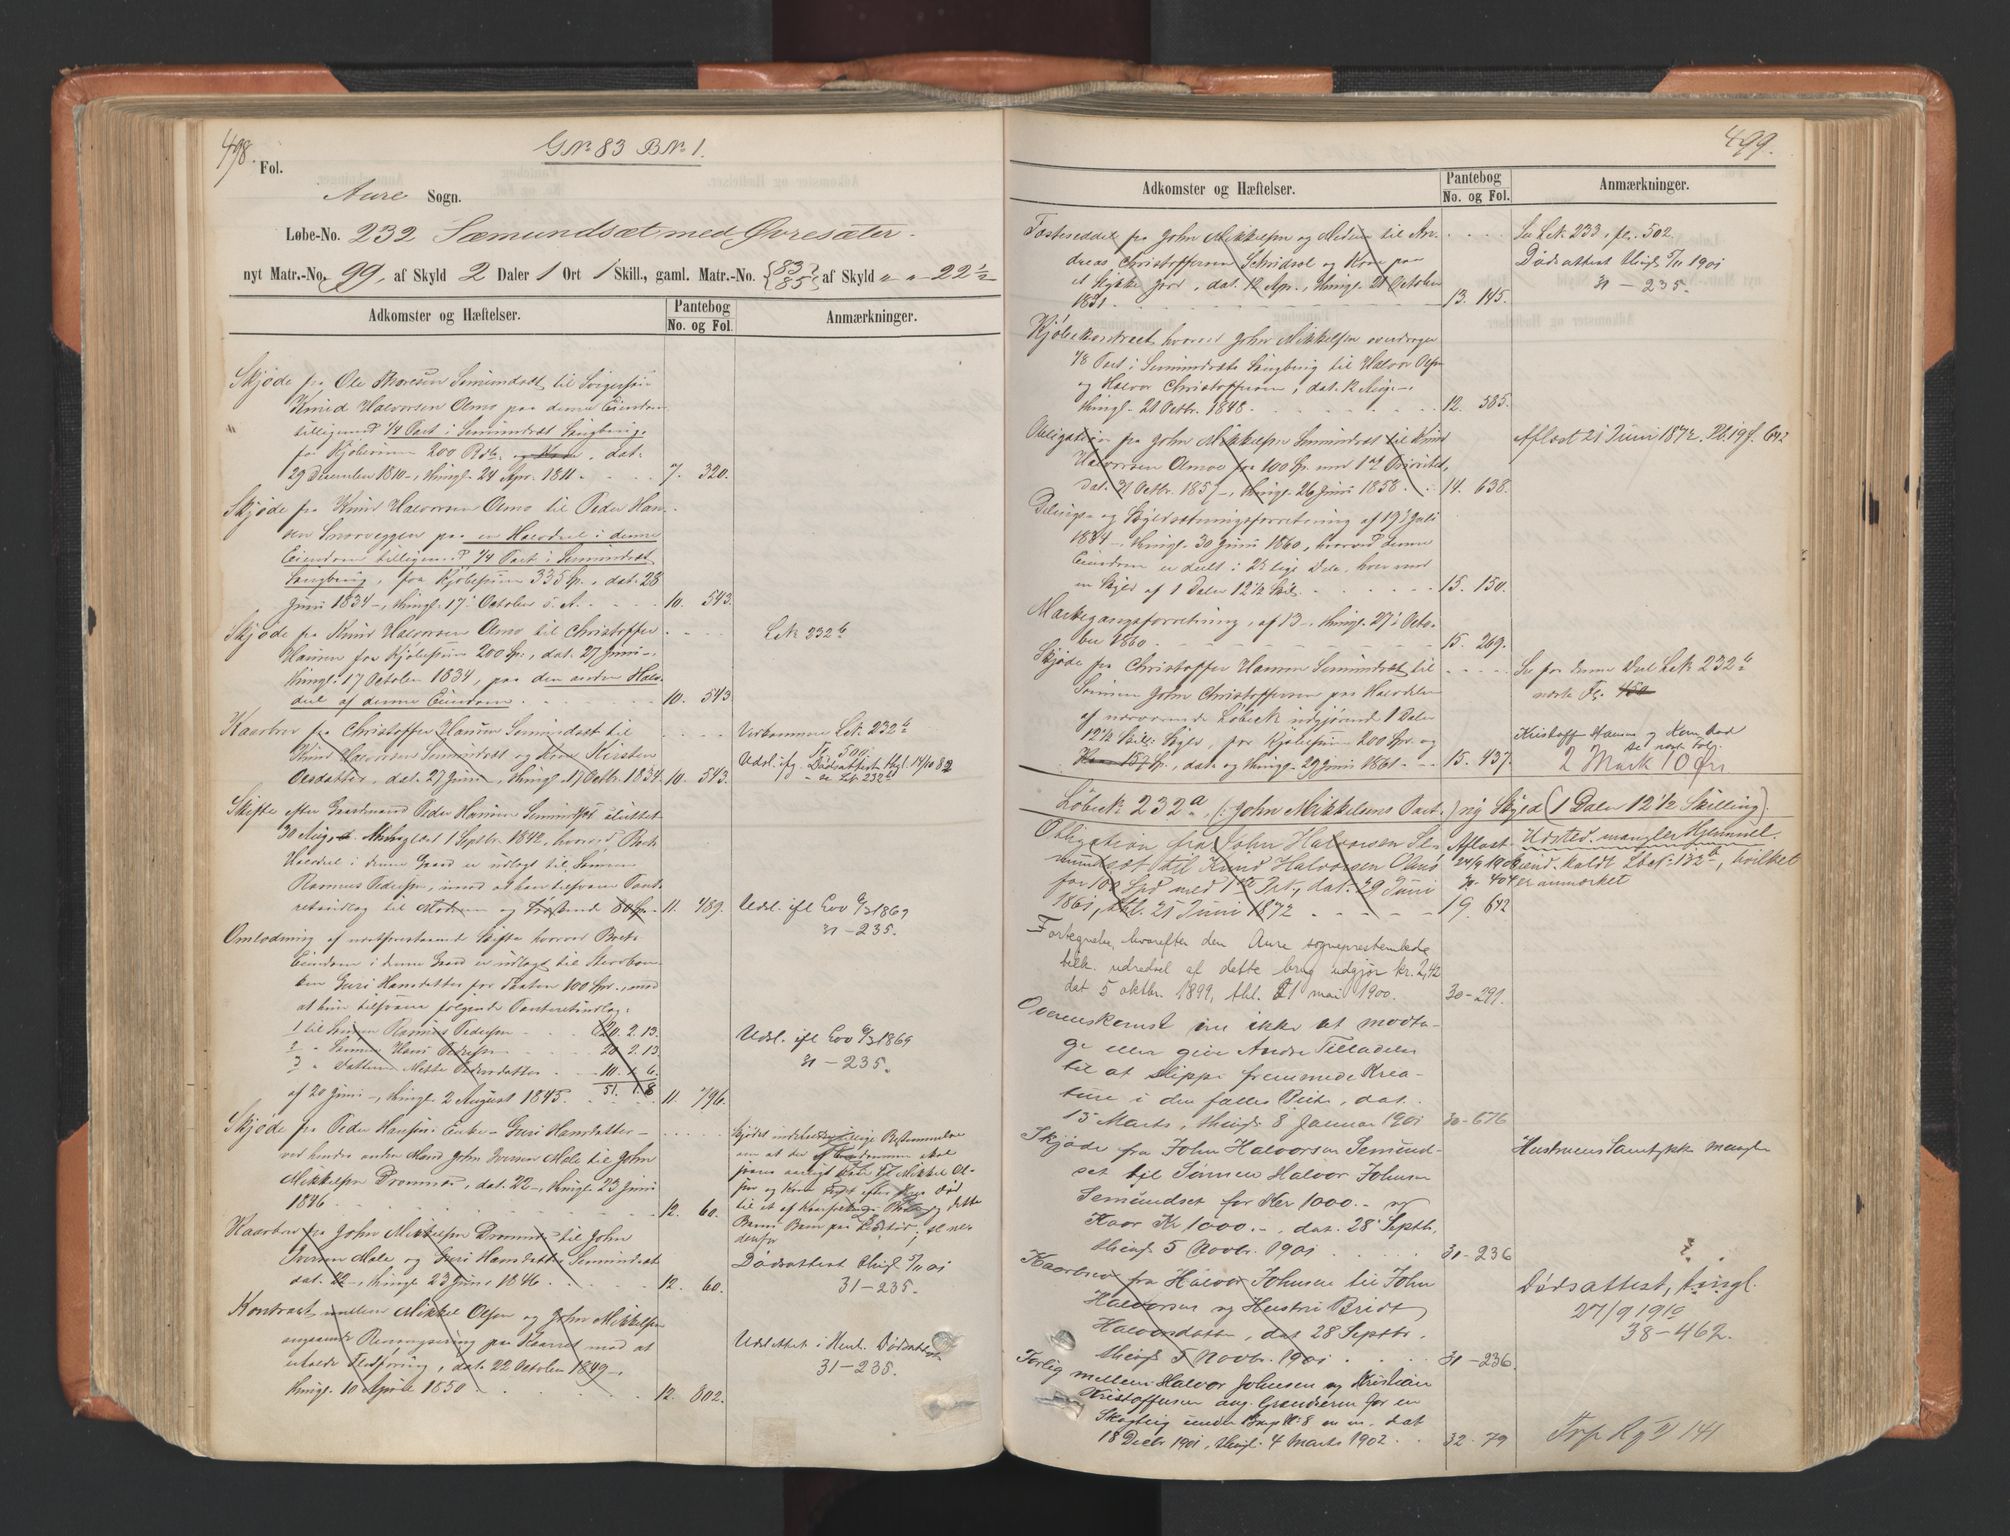 498.
Fol.
GNr 83 BNr 1.
Aure Sogn.
Løbe-No. 232 Sæmundsæt med Øvresæter.
nyt Matr.-No. 99, af Skyld 2 Daler 1 Ort 1 Skill., gaml. Matr.-No. {83 85} af Skyld " " 22 1/2
Adkomster og Hæftelser.
Pantebog
No. og Fol.
Anmærkninger.
Skjøde fra Ole Thoresen Semundsæt til Svigersøn
Knud Halvorsen Olmo paa denne Eiendom
tilligemed 1/4 Part i Semundsæt Langberg,
for Kjøbesum 200 Rdlr. , dat.
29 December 1810, thingl. 24 Apr. 1811 7. 320.
Skjøde fra Knud Halvorsen Olmo til Peder Han-
sen Snorveggen paa en Halvdeel i denne
Eiendom tilligemed 1/4 Part i Semundsæt
Langberg, for Kjøbesum 335 Sp., dat. 28
Juni 1834, thingl. 17 October s. A. 10. 543.
Skjøde fra Knud Halvorsen Olmo til Christoffer
Hansen for Kjøbesum 200 Sp., dat. 27 Juni,
thingl. 17 October 1834, paa den anden Halv-
deel af denne Eiendom. 10. 543.
Lb 232 b
Kaarbrev fra Christoffer Hansen Semundsæt til
Knud Halvorsen Semundsæt og Kone Kirsten
Olsdatter, dat. 27 Juni, thingl. 17 Octbr. 1834. 10. 543.
Vedkommer Lb 232 b
Fol. 500
Udsl. ifg. Dødsattest thgl. 14/10 82
se Lb. 232 b
Skifte efter Gaardmand Peder Hansen Semundsæt sluttet
30 Aug., thinglæst 1 Septbr. 1842, hvorved Boets
Halvdeel i denne Gaard er udlagt til Sønnen
Rasmus Pedersen, imod at han tilsvarer Pan-
teudlæg til Moderen og Søskende 80 Sp. 11. 489.
Udsl. ifl Lov 6/3 1869
31-235.
Omlodning af nestforestaaende Skifte hvorved Boets
Eiendom i denne Gaard er udlagt til Sterboen-
ken Guri Hansdatter for Taxten 100 Spr., mod
at hun tilsvarer følgende Panteretudlæg:
1 til Sønnen Rasmus Pedersen 20. 2. 13.
2 " Sønnen Hans Pedersen 20. 2. 13.
3 " Datteren Mette Pedersdatter 10. 1. 6.
51. 1. 8
af 20 Juni, thingl. 2 August 1845. 11. 796.
Udsl. ifl Lov 6/3 1869
31-235.
Skjøde fra Peder Hansens Enke Guri Hansdatter
ved hendes anden Mand John Iversen Mele til John
Mikkelsen Drommes, dat. 22, thingl. 23 Juni
1846 12. 60.
Skjødet indeholder tillige Bestemmelse
om at der af Eiendommen skal
Kaarbrev fra John Mikkelsen Dromnes til John
Iversen Mele, og Guri Hansdatter Semundsæt
dat. 22, thingl. 23 Juni 1846. 12. 60.
Dødsattest thingl 5/11 01
31-235.
Kontract mellem Mikkel Olsen og John Mikkelsen
angaaende Renongsering paa Kaaret mod at
erholde Flødføring, dat. 22 October 1849,
thingl. 10 April 1850 12. 802.
Udslettet i Henh. Dødsattest
31-235.
499.
Adkomster og Hæftelser.
Pantebog
No. og Fol.
Anmærkninger.
Fæsteseddel fra John Mikkelsen og Medeier til An-
dreas Christoffersen Schridsol og Kone paa
et Stykke Jord, dat. 12 Apr., thingl. 21 October
1851. 13. 145.
Se Lb 233, fl. 502.
Dødsattest thingl 5/11 1901
31-235.
Kjøbekontract, hvorved John Mikkelsen overdrager
1/8 Part i Semundsæts Langberg til Halvor Olsen
og Halvor Christoffersen, dat. 12 Aug.,
thingl. 21 Octbr. 1848. 12. 385.
Obligation fra John Mikkelsen Semundsæt til Knud
Halvorsen Olmo for 100 Sp. mod 1ste Prioritet,
dat. 21 Octbr. 1857, thingl. 26 Juni 1858. 14. 638.
Aflæst 21 Juni 1872. Pb. 19 f. 642
Delings- og Skyldsætningsforretning af 19 Juli
1834, thingl. 30 Juni 1860, hvorved denne
Eiendom er deelt i 2 lige Dele, hver med
en Skyld af 1 Daler 12 1/2 Skil. 15. 150.
Markegangsforretning, af 13, thingl. 27 Octo-
ber 1860 15. 269.
Skjøde fra Christoffer Hansen Semundsæt til
Sønnen John Christoffersen paa Halvdelen
af nærværende Løbeno. udgjørende 1 Daler
12 1/2 Skil. Skyld, for Kjøbesum 200 Spr. og
Kaar 157 Sp., dat. og thingl. 29 Juni 1861 15. 437.
Se for denne Deel Lb 232 b
næste Fol. 450
Kristoffer Hansen og Kone død
se næste Fol.
2 Mark 10 Øre
Løbeno. 232 a, (: John Mikkelsens Part :) ny Skyld (1 Daler 12 1/2 Skilling).
Obligation fra John Halvorsen Se-
mundsæt til Knud Halvorsen Olmo
for 100 Spd med 1ste Prt., dat. 29 Juni
1861, thl. 21 Juni 1872 19. 642
Aflæst
24/9 1904
30-404
Udsted. mangler Hjemmel.
kaldt Lbno. 132 b, hvilket
er anmærket
Fortegnelse, hvorefter den Aure sogneprestembede
tilk. udredsel af dette brug udgjør kr. 2,42
dat 5 oktbr. 1899, thl. 21 mai 1900. 30-291.
Overenskomst om ikke at modta-
ge eller give Andre Tilladelse
til at slippe fremmede Krea-
ture i den fælles Beite, dat.
15 Marts, thingl 8 Januar 1901 30-676
Skjøde fra John Halvorsen Semund-
set til Sønnen Halvor Johnsen
Semundset for Kr 1000.- og
Kaar Kr 1000.-, dat. 28 Septb.
thingl 5 Novbr. 1901 31-236
Hustruens Samtykke mangler
Kaarbrev fra Halvor Johnsen til John
Halvorsen og Hustru Bridt
Halvorsdatter, dat 28 Septbr.
thingl 5 Novbr. 1901 31-236.
Dødsattest, tingl.
27/9 1910
38-462.
Forlig mellem Halvor Johnsen og Kristian
Kristoffersen ang. Grændsen for en
Skogteig under Brug No 8 m. m. dat
18 Decbr 1901, thingl. 4 Marts 1902 32-79
Trp Rg V 141